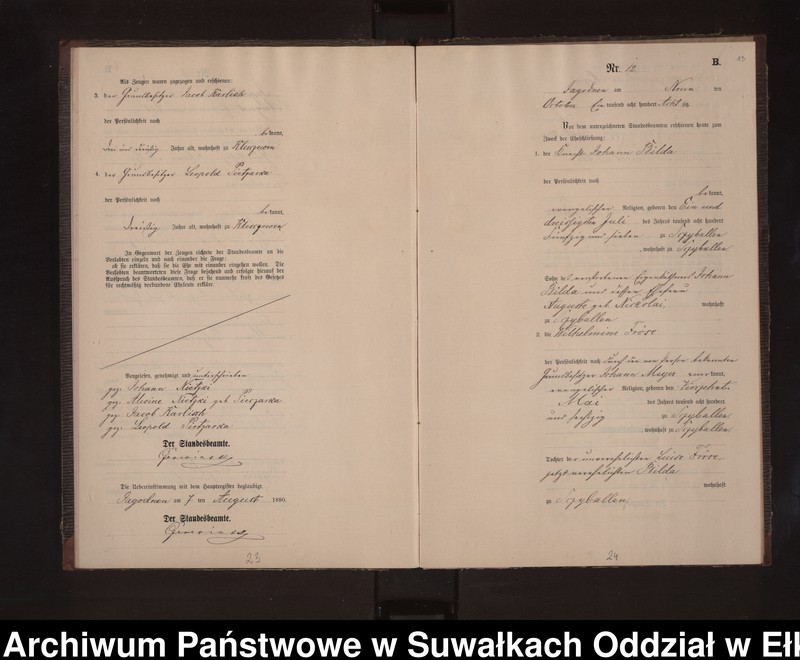 Als Zeugen waren zugezogen und erschienen:
3. der Grundbesitzer Jacob Karlisch
der Persönlichkeit nach
bekannt,
drei und dreißig Jahre alt, wohnhaft zu
4. der Grundbesitzer Leopold Pietzarka
der Persönlichkeit nach
bekannt,
dreißig Jahre alt, wohnhaft zu
In Gegenwart der Zeugen richtete der Standesbeamte an die
Verlobten einzeln und nach einander die Frage:
ob sie erklären, daß sie die Ehe mit einander eingehen wollen. Die
Verlobten beantworteten diese Frage bejahend und erfolgte hierauf der
Ausspruch des Standesbeamten, daß er sie nunmehr kraft des Gesetzes
für rechtmäßig verbundene Eheleute erkläre.
Vorgelesen, genehmigt und unterschrieben
gez. Johann Nietzki
gez. Alwine Nietzki geb. Pietzarka
gez. Jacob Karlisch
gez. Leopold Pietzarka
Der Standesbeamte.
Die Uebereinstimmung mit dem Hauptregister beglaubigt.
Jagodnen am 7. ten August 1880.
Der Standesbeamte.
23
Nr. 12
B.
13
Jagodnen am Neun ten
October Ein tausend acht hundert Acht zig
Vor dem unterzeichneten Standesbeamten erschienen heute zum
Zweck der Eheschließung:
1. der Knecht Johann Bilda
der Persönlichkeit nach
bekannt,
evangelischer Religion, geboren den Ein und
dreißigsten Juli des Jahres tausend acht hundert
fünfzig und sieben zu Szyballen
, wohnhaft zu Szyballen
Sohn des verstorbenen Eigenkäthners Johann
Bilda und dessen Ehefrau
Auguste geb. Nickolai, wohnhaft
zu Szyballen
2. die Wilhelmine Fröse
der Persönlichkeit nach durch den von Person bekannten
Grundbesitzer Johann Meyer anerkannt,
evangelischer Religion, geboren den
Mai des Jahres tausend acht hundert
und sechzig zu Szyballen
, wohnhaft zu Szyballen
Tochter der unverehelichten Luise Fröse
jetzt verehelichten Bilda
wohnhaft
zu Szyballen
24
Archiwum Państwowe w Suwałkach Oddział w Ełk